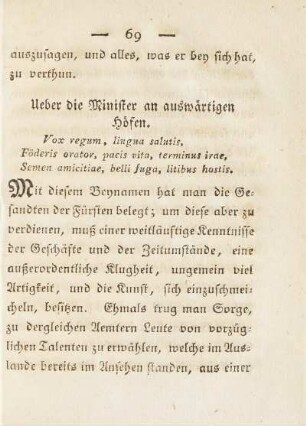 — 69 —
auszusagen, und alles, was er bey sich hat,
zu verthun.
Ueber die Minister an auswärtigen
Höfen.
Vox regum, lingua salutis,
Föderis orator, pacis vita, terminus irae,
Semen amicitiae, belli fuga, litibus hostis.
Mit diesem Beynamen hat man die Ge-
sandten der Fürsten belegt; um diese aber zu
verdienen, muß einer weitläuftige Kenntnisse
der Geschäfte und der Zeitumstände, eine
außerordentliche Klugheit, ungemein viel
Artigkeit, und die Kunst, sich einzuschmei-
cheln, besitzen. Ehmals trug man Sorge,
zu dergleichen Aemtern Leute von vorzüg-
lichen Talenten zu erwählen, welche im Aus-
lande bereits im Ansehen standen, aus einer